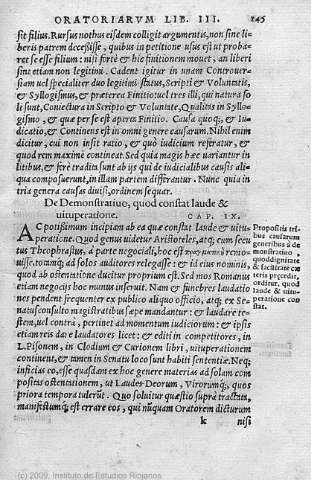 ORATORIARVM LIB. III. 145
sit filius. Rursus nothus eisdem colligit argumentis, non sine li-
beris patrem decessisse, quibus in petitione usus est ut proba-
ret se esse filium: nisi fortè & hic finitionem mouet, an liberi
sint etiam non legitimi. Cadent igitur in unam Controuer-
siam uel specialiter duo legitimi status, Scripti & Voluntatis,
& Syllogismus, & præterea Finitio: uel tres illi, qui natura so-
li sunt, Coniectura in Scripto & Voluntate, Qualitas in Syllo-
gismo, & quæ per se est aperta Finitio. Causa quoq;, & Iu-
dicatio, & Continens est in omni genere causarum. Nihil enim
dicitur, cui non insit ratio, & quò iudicium referatur, &
quod rem maximè contineat. Sed quia magis hæc uariantur in
litibus, & ferè tradita sunt ab ijs qui de iudicialibus causis ali-
qua composuerunt, in illam partem differantur. Nunc quia in
tria genera causas diuisi, ordinem sequar.
De Demonstratiuo, quod constat laude &
uituperatione. CAP. IX.
AC potissimum incipiam ab ea quæ constat laude & uitu-
peratione. Quod genus uidetur Aristoteles, atq; eum secu-
tus Theophrastus, à parte negociali, hoc est remo-
uisse, totamq; ad solos auditores relegasse: & id eius nominis,
quod ab ostentatione ducitur proprium est. Sed mos Romanus
etiam negocijs hoc munus inseruit. Nam & funebres laudatio
nes pendent frequenter ex publico aliquo officio, atq; ex Se-
natusconsulto magistratibus sæpe mandantur: & laudare te-
stem, uel contrà, pertinet ad momentum iudiciorum: & ipsis
etiam reis dare laudatores licet: & editi in competitores, in
L. Pisonem, in Clodium & Curionem libri, uituperationem
continent, & tamen in Senatu loco sunt habiti sententiæ. Neq;
inficias eo, esse quasdam ex hoc genere materias ad solam com
positas ostentationem, ut Laudes Deorum, Virorumq;, quos
priora tempora tulerūt. Quo soluitur quæstio suprà tractata,
manifestumq; est errare eos, qui nūquam Oratorem dicturum
k nisi
Propositis tri
bus causarum
generibus à de
monstratiuo,
quod dignitate
& facilitate cæ
teris præcedit,
orditur, quod
laude & uitu-
peratione con
stat.
(c) 2009, Instituto de Estudios Riojanos